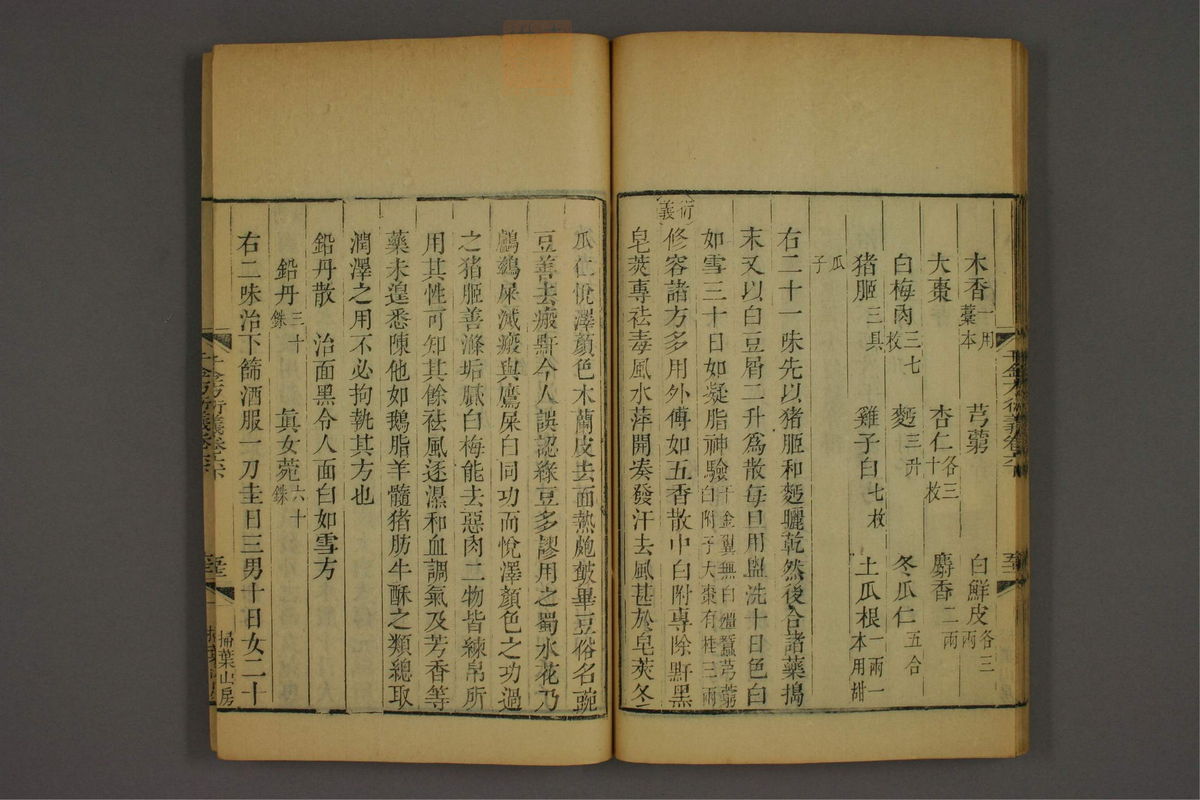 木香一用藁本　芎藭　白鮮皮各三兩
大棗　杏仁各三十枚　麝香二兩
白梅肉三七枚　麪三升　冬瓜仁五合
猪胰三具　雞子白七枚　土瓜根一兩一本用甜
瓜子
右二十一味先以猪胰和麪曬乾然後合諸藥搗
末又以白豆屑二升爲散每旦用盥洗十日色白
如雪三十日如凝脂神驗千金翼無白殭蠶芎藭白附子大棗有桂三兩
衍義
修容諸方多用外傅如五香散中白附專除䵟黑
皂莢專祛毒風水萍開湊發汗去風甚於皂莢冬
瓜仁悅澤顏色木蘭皮去面熱皰皻畢豆俗名豌
豆善去瘢䵟今人誤認綠豆多謬用之蜀水花乃
鸕鷀屎滅瘢與鷹屎白同功而悅澤顏色之功過
之猪胰善滌垢膩白梅能去惡肉二物皆練帛所
用其性可知其餘祛風逐濕和血調氣及芳香等
藥未遑悉陳他如鵝脂羊髓猪肪牛酥之類總取
潤澤之用不必拘執其方也
鉛丹散　治面黑令人面白如雪方
鉛丹三十銖　眞女菀六十銖
右二味治下篩酒服一刀圭日三男十日女二十
千金方衍義卷六
掃葉山房